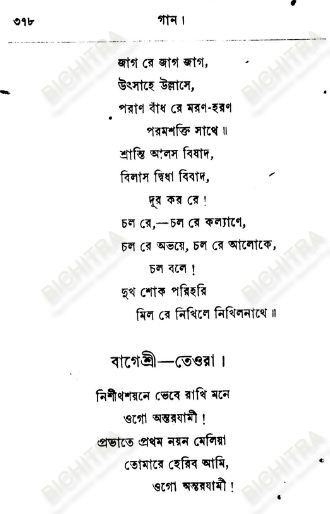 ৩৭৮
গান।
জাগ রে জাগ জাগ,
উৎসাহে উল্লাসে,
পরাণ বাঁধ রে মরণ-হরণ
পরমশক্তি সাথে॥
শ্রান্তি অলস বিষাদ,
বিলাস দ্বিধা বিবাদ,
দূর কর রে!
চল রে,—চল রে কল্যাণে,
চল রে অভয়ে, চল রে আলোকে,
চল বলে!
দুখ শোক পরিহরি
মিল রে নিখিলে নিখিলনাথে॥
বাগেশ্রী—তেওরা।
নিশীথশয়নে ভেবে রাখি মনে
ওগো অন্তরযামী!
প্রভাতে প্রথম নয়ন মেলিয়া
তোমারে হেরিব আমি,
ওগো অন্তরযামী!
BICHITRA
BICHITRA
BICHITRA
BICHITRA
BICHITRA
BICHITRA